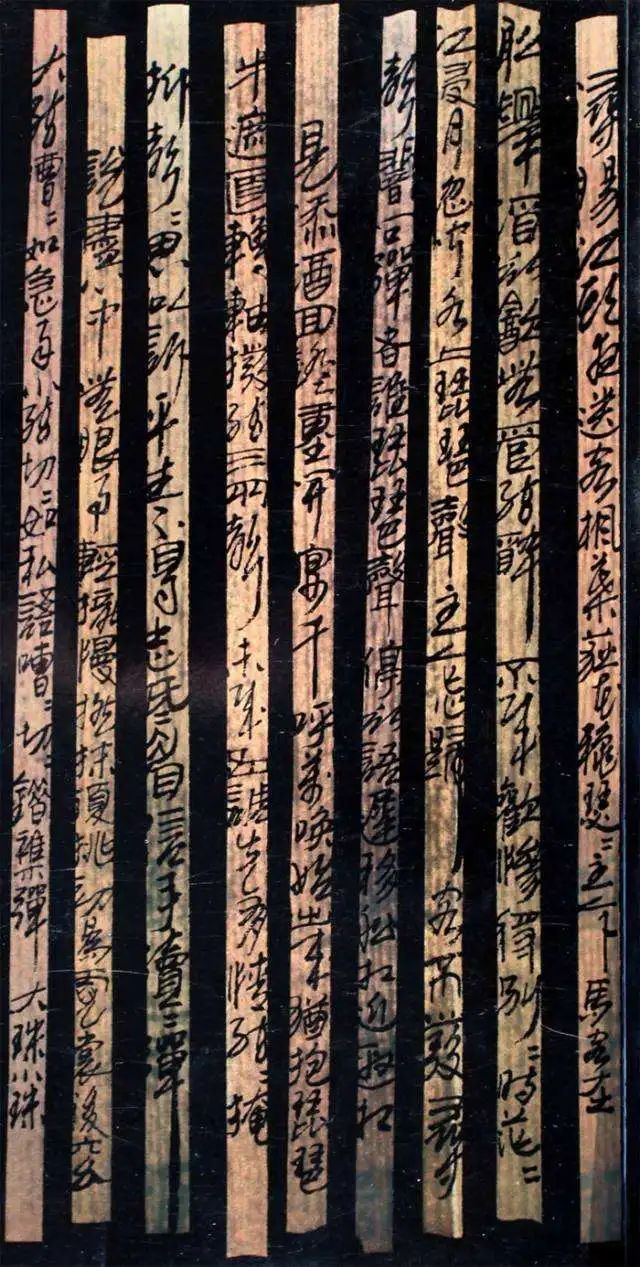 潯陽江頭夜送客楓葉荻花穐瑟〻主人下馬客在
船舉酒欲飲無管絃醉不成歡慘將別〻時茫〻
江浸月忽聞水上琵琶聲主人忘歸客不發尋
聲闇問彈者誰琵琶聲停欲語遲移船相近邀相
見添酒回燈重開宴千呼萬喚始出來猶抱琵琶
半遮面轉軸撥絃三兩聲未成曲調先有情絃〻掩
抑聲〻思似訴平生不得志低眉信手續〻彈
說盡心中無限事輕攏慢撚抹復挑初為霓裳後六幺
大絃嘈〻如急雨小絃切〻如私語嘈〻切〻錯雜彈大珠小珠